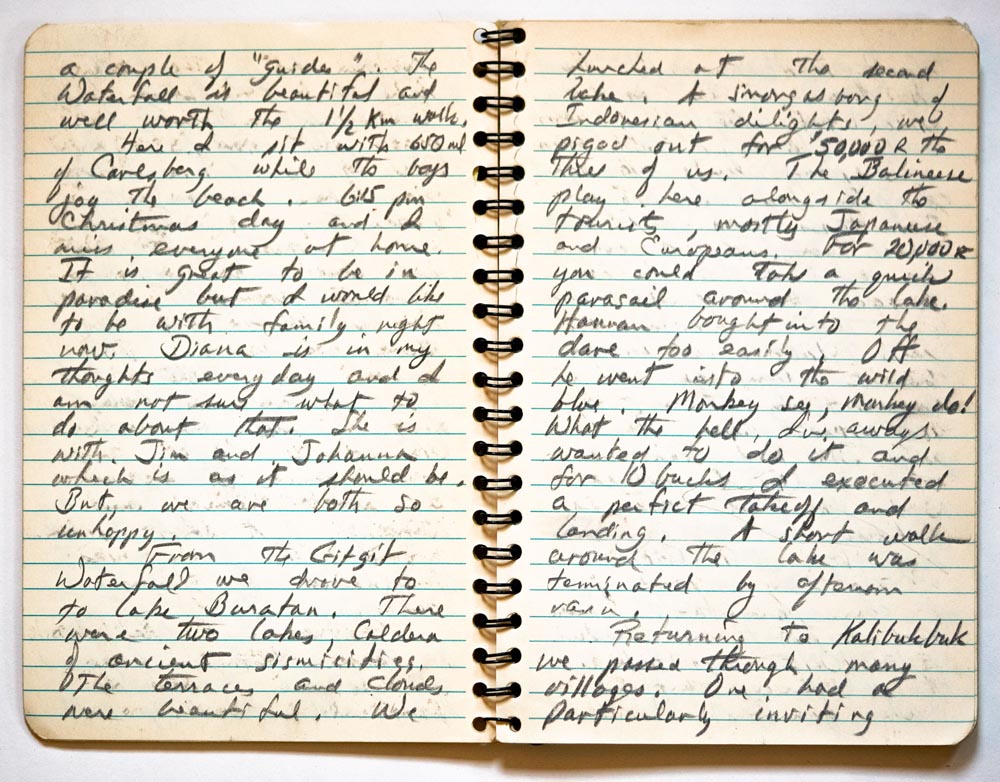 a couple of "guides". The
Waterfall is beautiful and
well worth the 1 1/2 Km walk.
Here I sit with 650 ml
of Carlsberg while the boys
joy the beach. 6:15 pm
Christmas day and I
miss everyone at home.
It is great to be in
paradise but I would like
to be with family right
now. Diana is in my
thoughts everyday and I
am not sure what to
do about that. She is
with Jim and Johanna
which is as it should be.
But, we are both so
unhappy.
From the Gitgit
Waterfall we drove to
to lake Buratan. There
were two lakes, Caldera
of ancient sismicities.
The terraces and clouds
were beautiful. We
Lunched at the second
lake. A smorgasborg of
Indonesian dilights, we
piged out for 50,000 R the
three of us. The Balineese
play here alongside the
tourists, mostly Japanese
and Europeans. For 20,000 R
you could take a quick
parasail around the lake.
bought into the
dare too easily. Off
he went into the wild
blue. Monkey see, monkey do!
What the hell, I've always
wanted to do it and
for 10 bucks I executed
a perfict takeoff and
landing. A short walk
around the lake was
terminated by afternoon
rain.
Returning to Kalibukbuk
we passed through many
villages. One, had a
particularly inviting